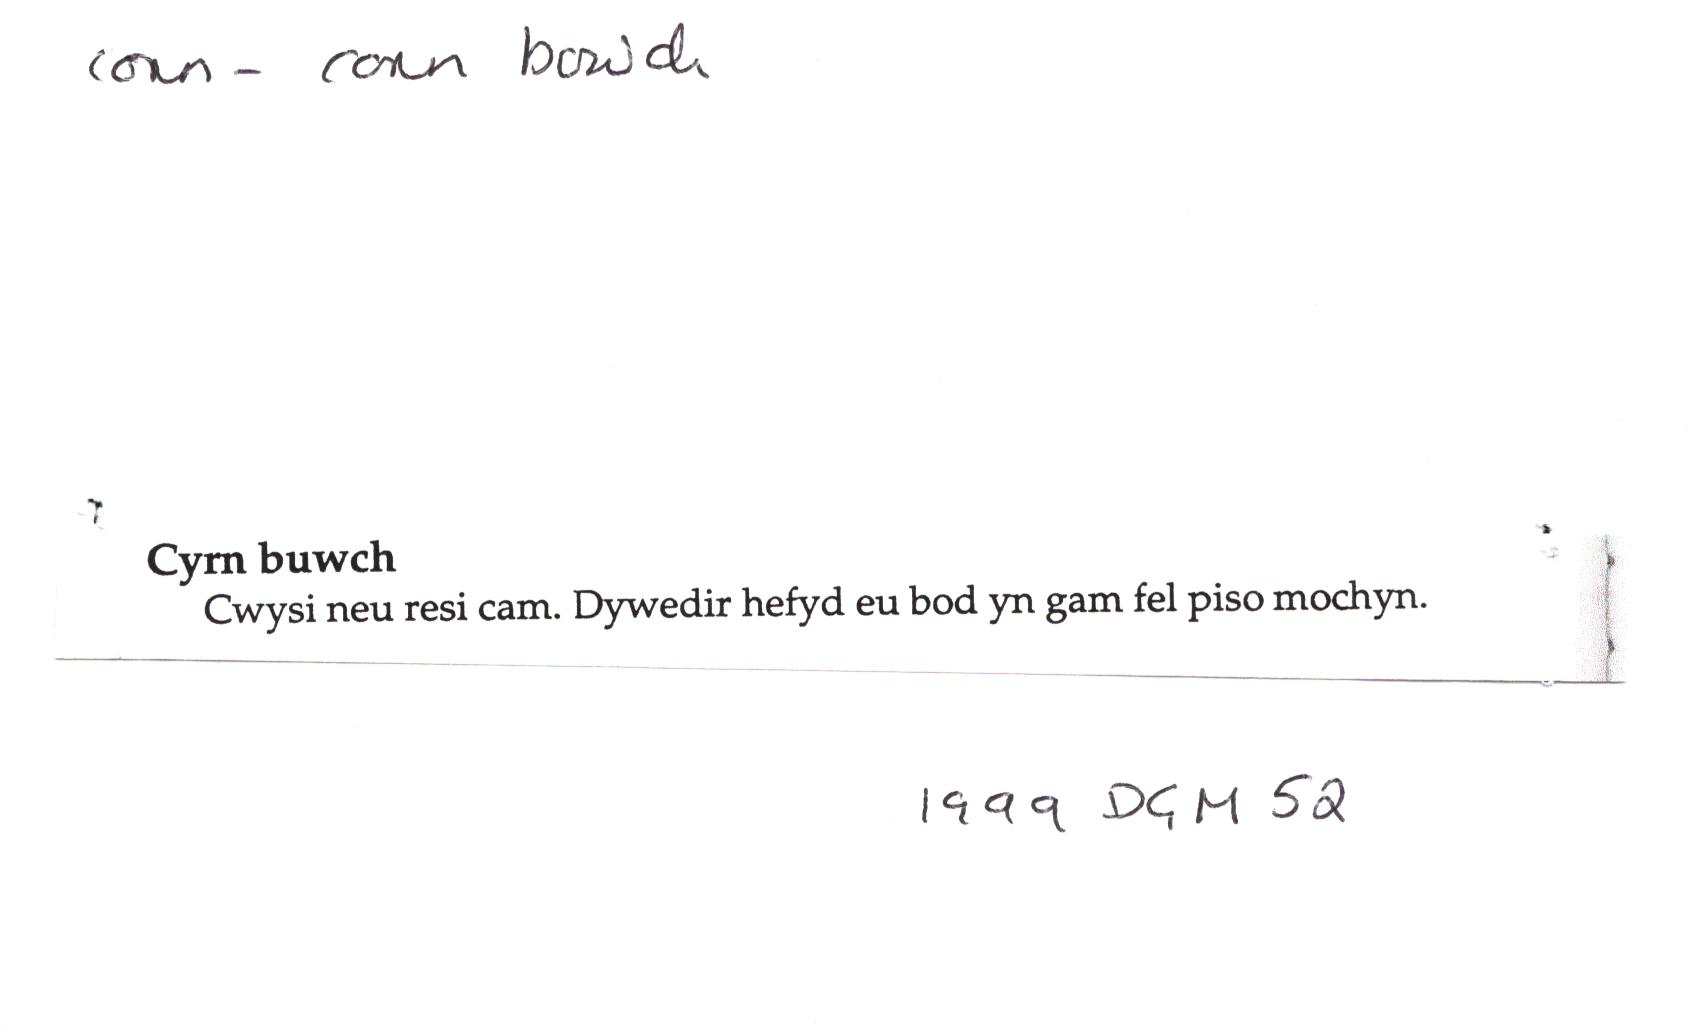 corn - corn buwch
Cyrn buwch
Cwysi neu resi cam. Dywedir hefyd eu bod yn gam fel piso mochyn.
1999 DGM 52